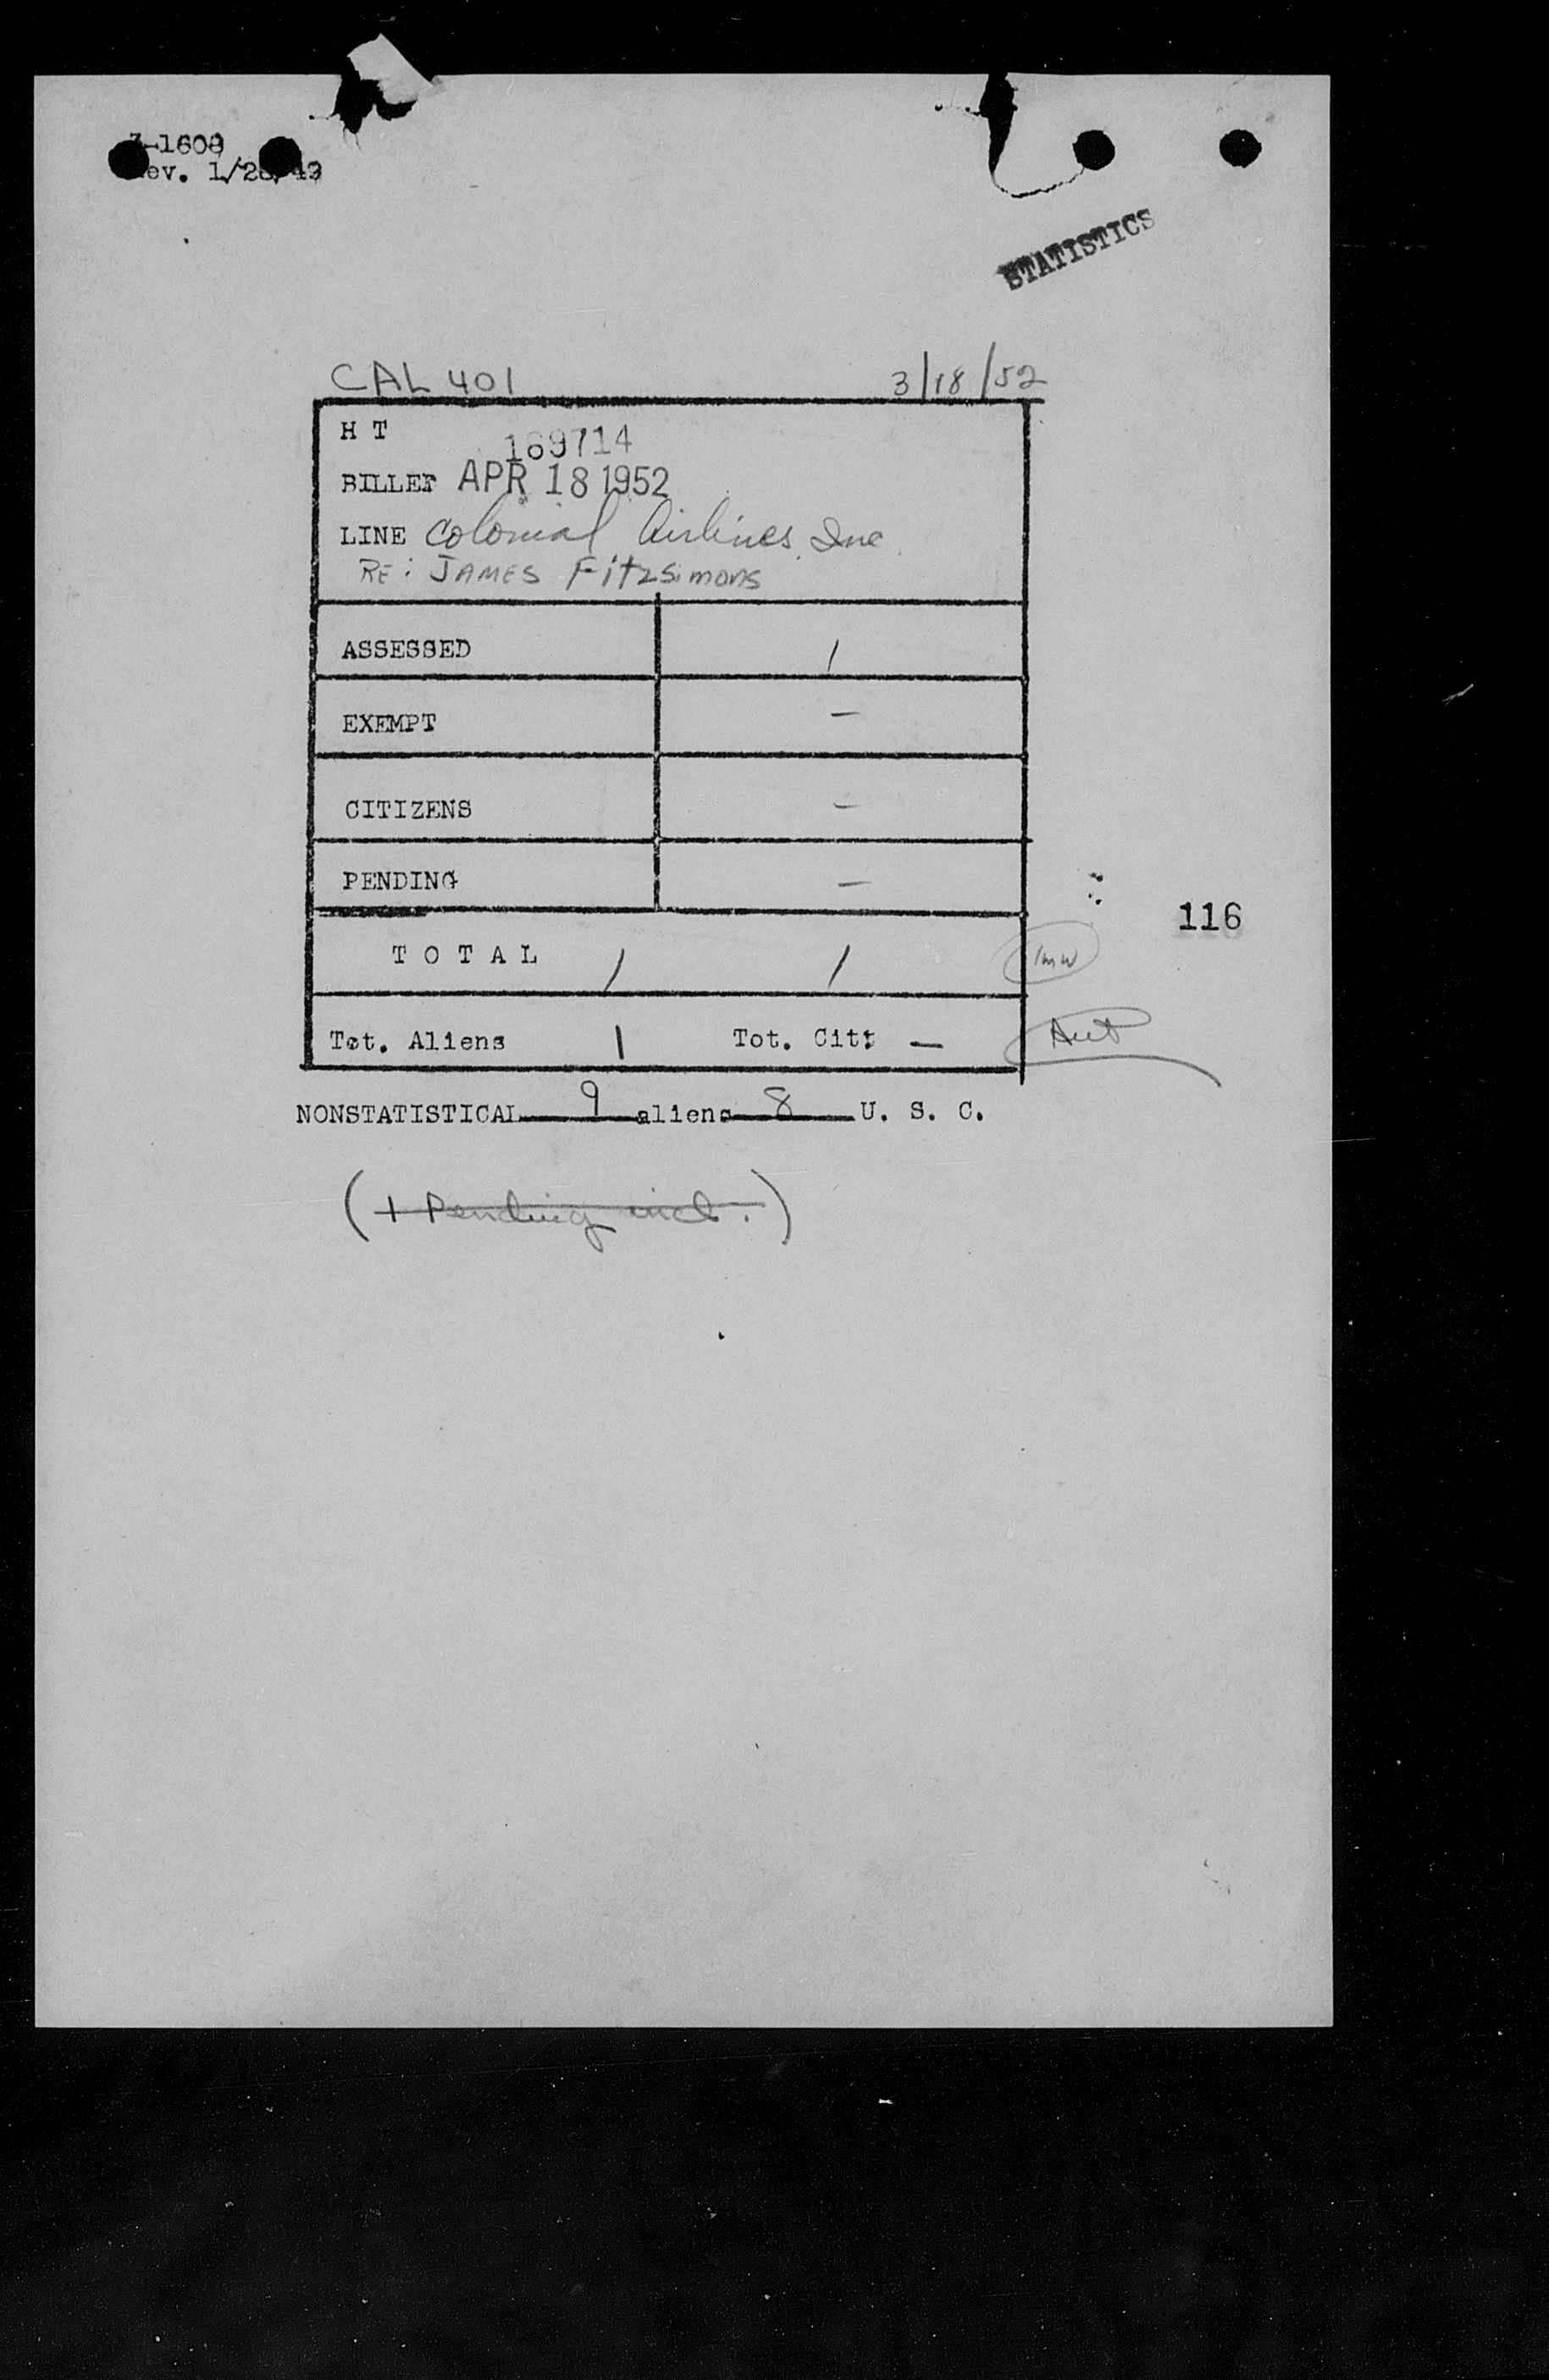 -1609
ev. 1/28/49
STATISTICS
CAL 401 3/18/52
H T 169714
BILLET APR 18 1952
LINE Colonial Airlines, Inc.
RE: JAMES Fitzsimons
ASSESSED 1
EXEMPT —
CITIZENS —
PENDING —
116
T O T A L 1 1 imw
Tot. Aliens 1 Tot. Cit: —
NONSTATISTICAL 9 aliens 8 U. S. C.
(+ Pending incl.)